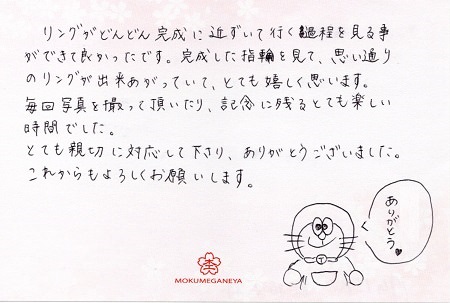 リングがどんどん完成に近ずいて行く過程を見る事
ができて良かったです。完成した指輪を見て、思い通り
のリングが出来あがっていて、とても嬉しく思います。
毎回写真を撮って頂いたり、記念に残るとても楽しい
時間でした。
とても親切に対応して下さり、ありがとうございました。
これからもよろしくお願いします。
ありがとう♥
MOKUMEGANEYA